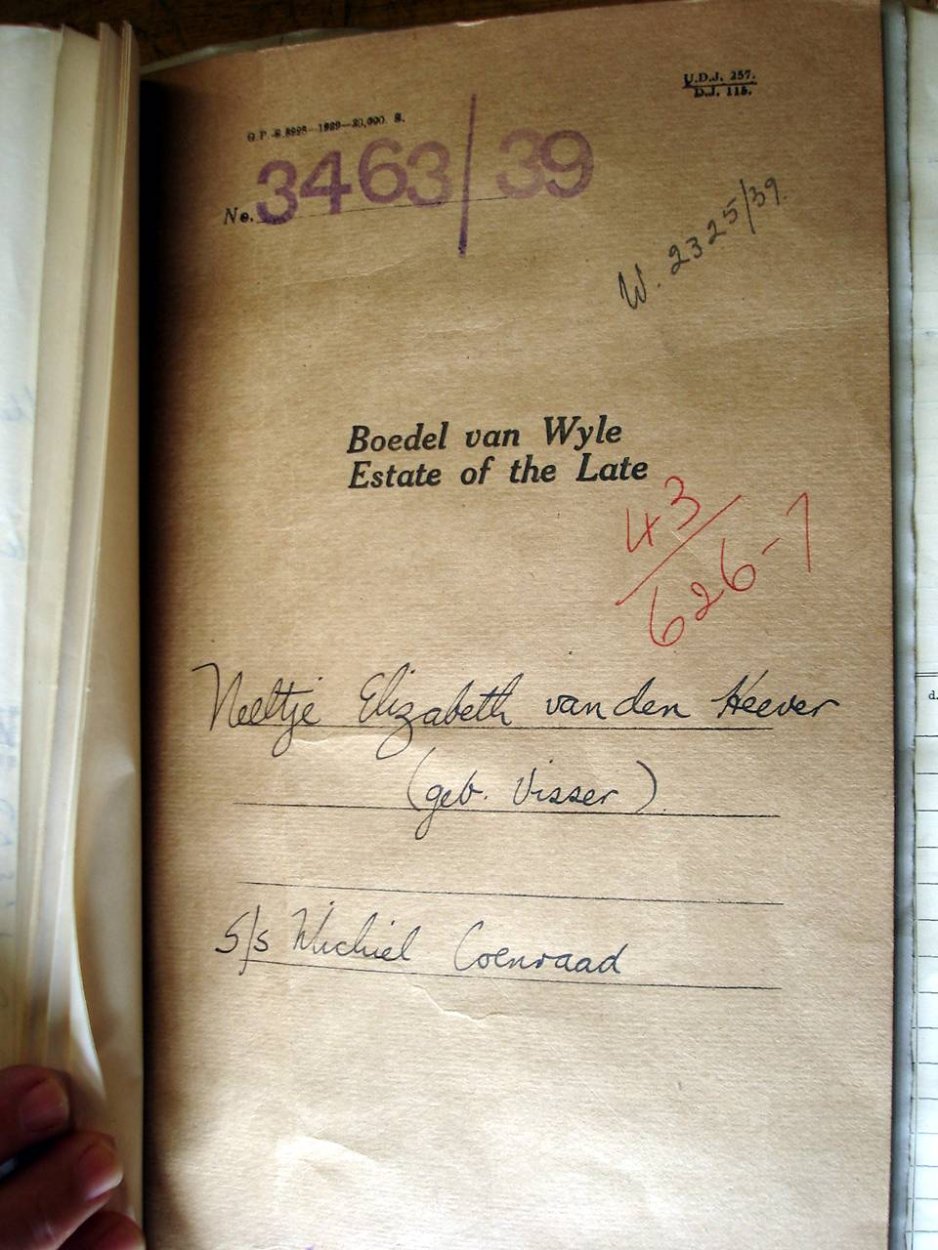 U.D.J. 257.
D.J. 115.
G.P.-S.8995—1939—20,000. S.
No. 3463/39
W. 2325/39.
Boedel van Wyle
Estate of the Late
43/626-7
Neeltje Elizabeth van den Heever
(geb. Visser)
S/s Michiel Coenraad
d.